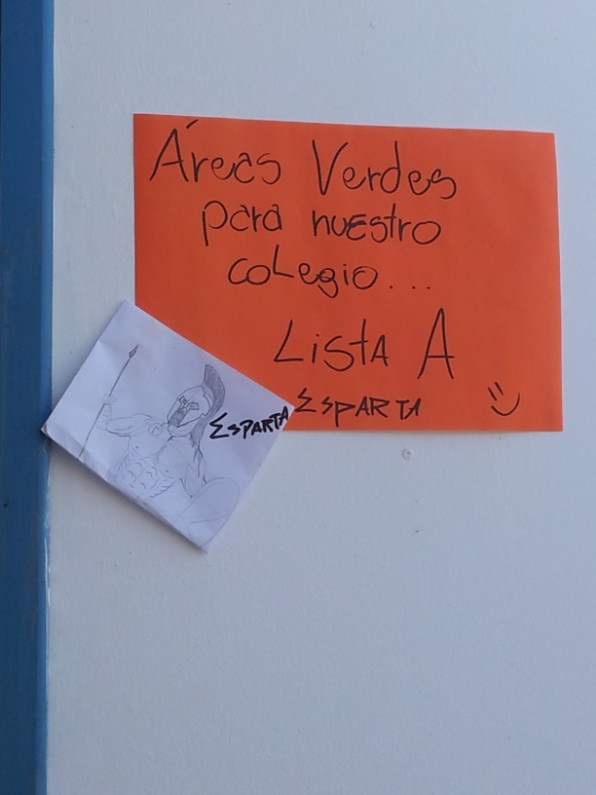 Áreas Verdes
para nuestro
coLegio...
Lista A
ESPARTA
ESPARTA